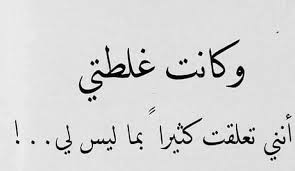 وكانت غلطتي
أنني تعلقت كثيراً بما ليس لي...!